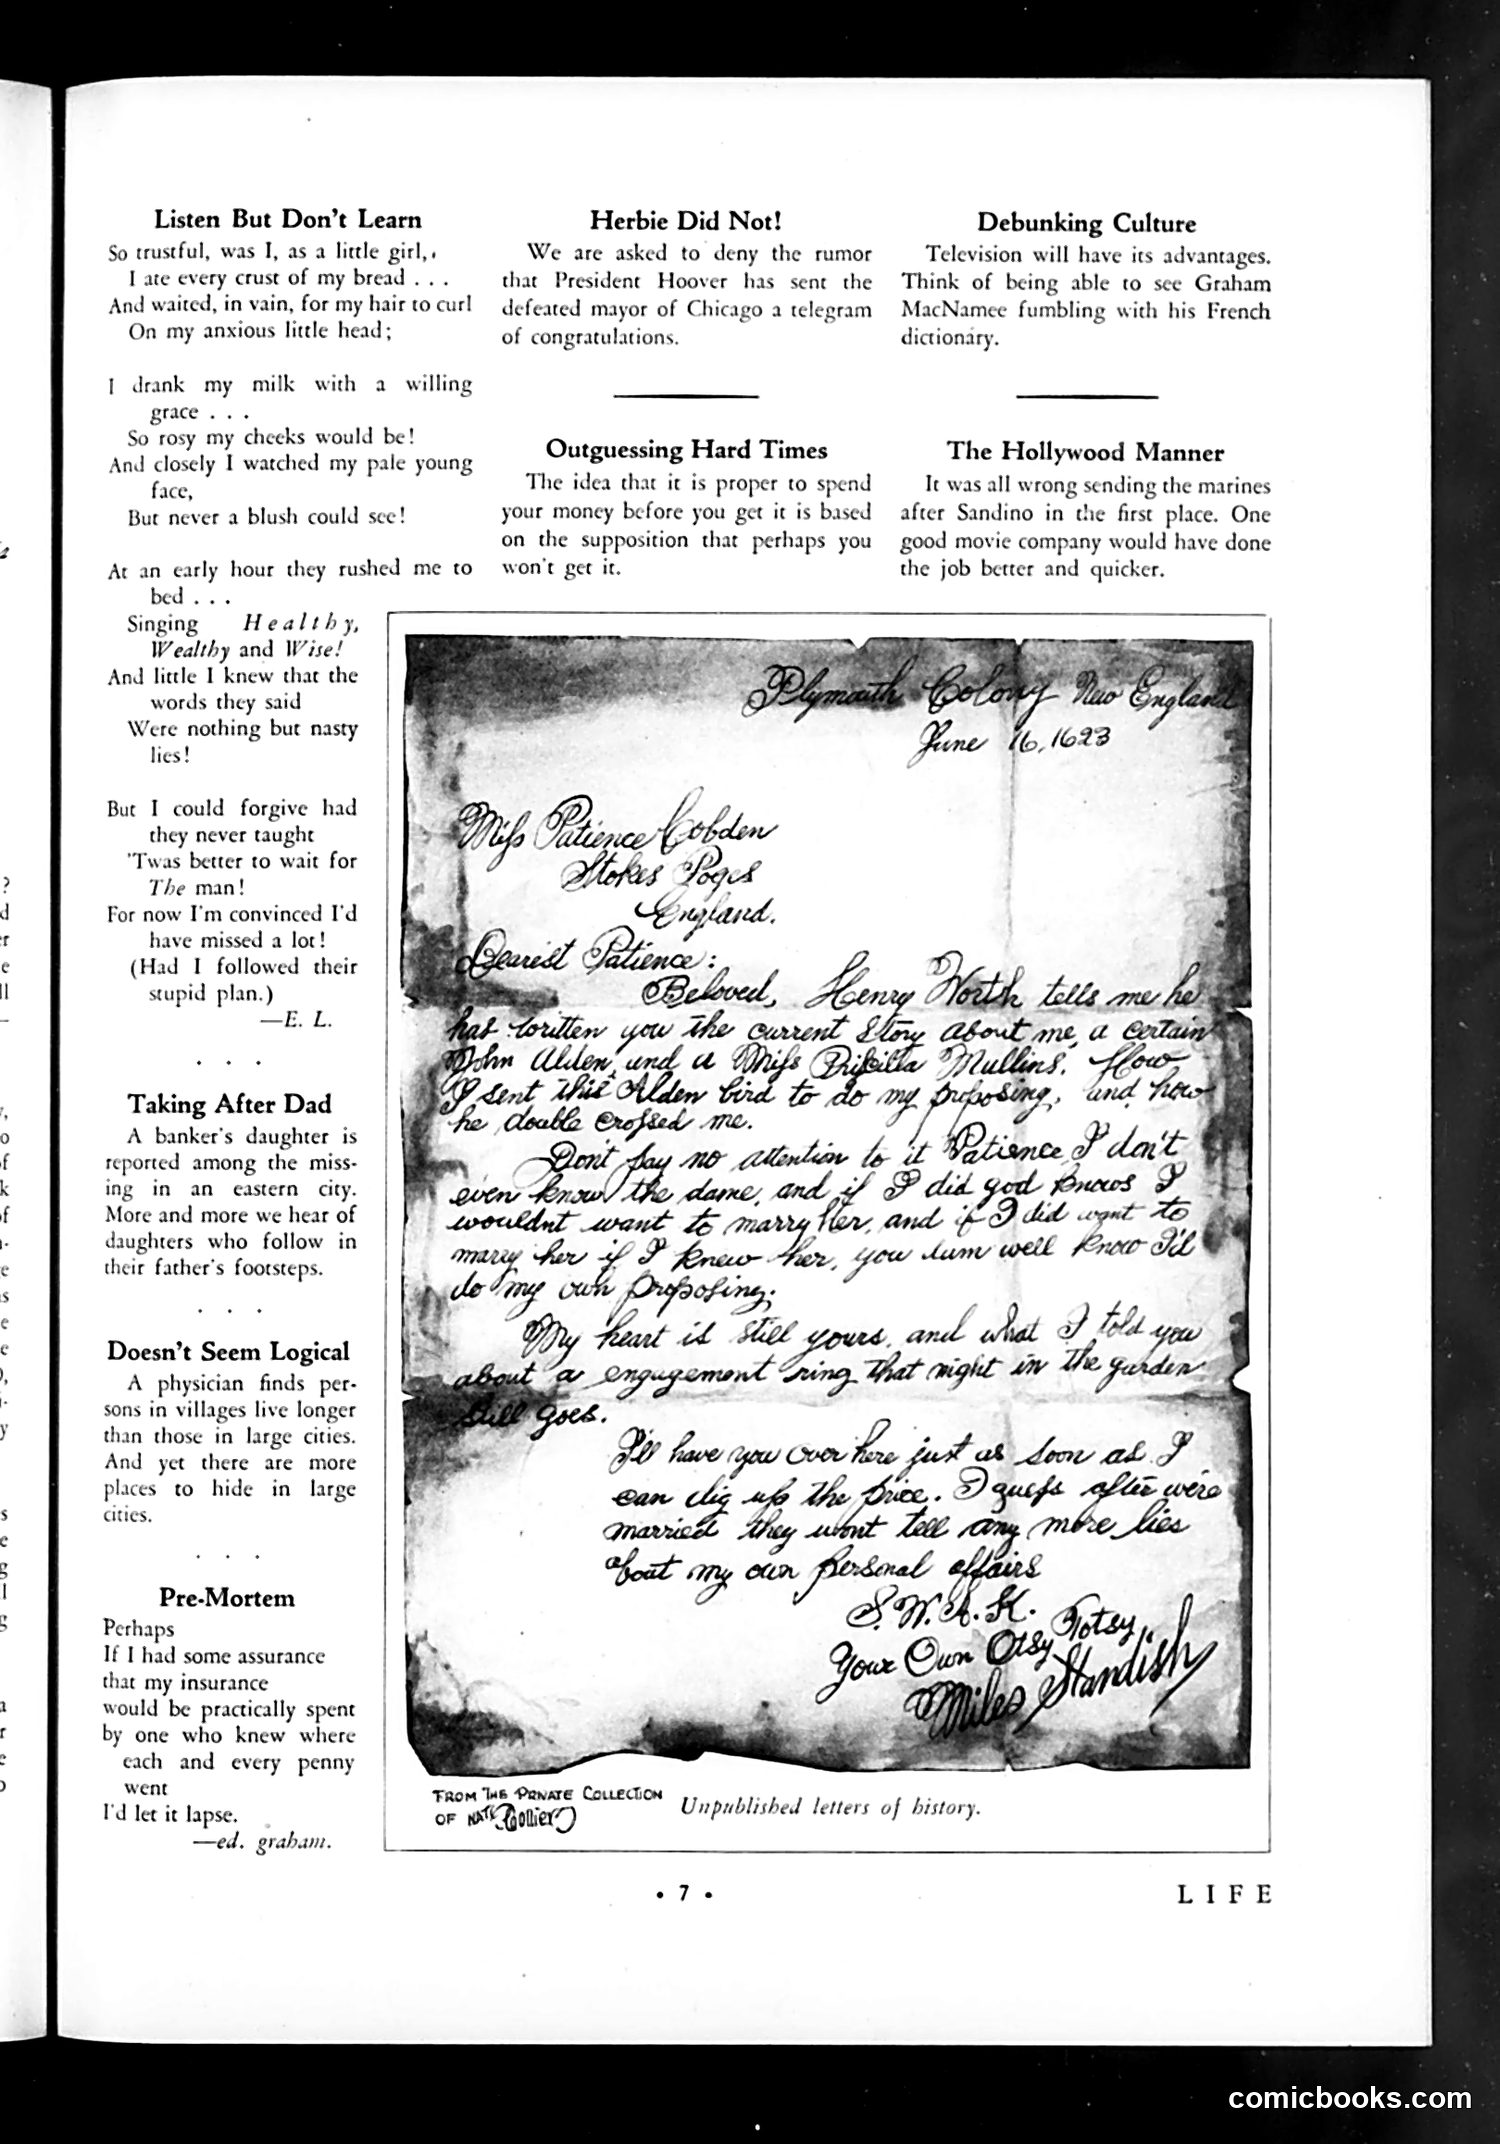 Listen But Don't Learn
So trustful, was I, as a little girl,
I ate every crust of my bread . . .
And waited, in vain, for my hair to curl
On my anxious little head;
I drank my milk with a willing
grace . . .
So rosy my cheeks would be!
And closely I watched my pale young
face,
But never a blush could see!
At an early hour they rushed me to
bed . . .
Singing Healthy,
Wealthy and Wise!
And little I knew that the
words they said
Were nothing but nasty
lies!
But I could forgive had
they never taught
'Twas better to wait for
The man!
For now I'm convinced I'd
have missed a lot!
(Had I followed their
stupid plan.)
—E. L.
. . .
Taking After Dad
A banker's daughter is
reported among the miss-
ing in an eastern city.
More and more we hear of
daughters who follow in
their father's footsteps.
. . .
Doesn't Seem Logical
A physician finds per-
sons in villages live longer
than those in large cities.
And yet there are more
places to hide in large
cities.
. . .
Pre-Mortem
Perhaps
If I had some assurance
that my insurance
would be practically spent
by one who knew where
each and every penny
went
I'd let it lapse.
—ed. graham.
Herbie Did Not!
We are asked to deny the rumor
that President Hoover has sent the
defeated mayor of Chicago a telegram
of congratulations.
Outguessing Hard Times
The idea that it is proper to spend
your money before you get it is based
on the supposition that perhaps you
won't get it.
Debunking Culture
Television will have its advantages.
Think of being able to see Graham
MacNamee fumbling with his French
dictionary.
The Hollywood Manner
It was all wrong sending the marines
after Sandino in the first place. One
good movie company would have done
the job better and quicker.
Plymouth Colony New England
June 16, 1623
Miss Patience Cobden
Stokes Poges
England.
Dearest Patience:
Beloved, Henry Worth tells me he
has written you the current story about me, a certain
John Alden, and a Miss Priscilla Mullins. How
I sent this Alden bird to do my proposing, and how
he double crossed me.
Don't pay no attention to it Patience, I don't
even know the dame, and if I did god knows I
wouldnt want to marry her, and if I did want to
marry her if I knew her, you dum well know I'd
do my own proposing.
My heart is still yours, and what I told you
about a engagement ring that night in the garden
still goes.
I'll have you over here just as soon as I
can dig up the price. I guess after we're
married they wont tell any more lies
about my own personal affairs
S.W.A.K.
Your Own Otsy Totsy
Miles Standish
FROM THE PRIVATE COLLECTION
OF NATE Collier
Unpublished letters of history.
• 7 •
LIFE
comicbooks.com